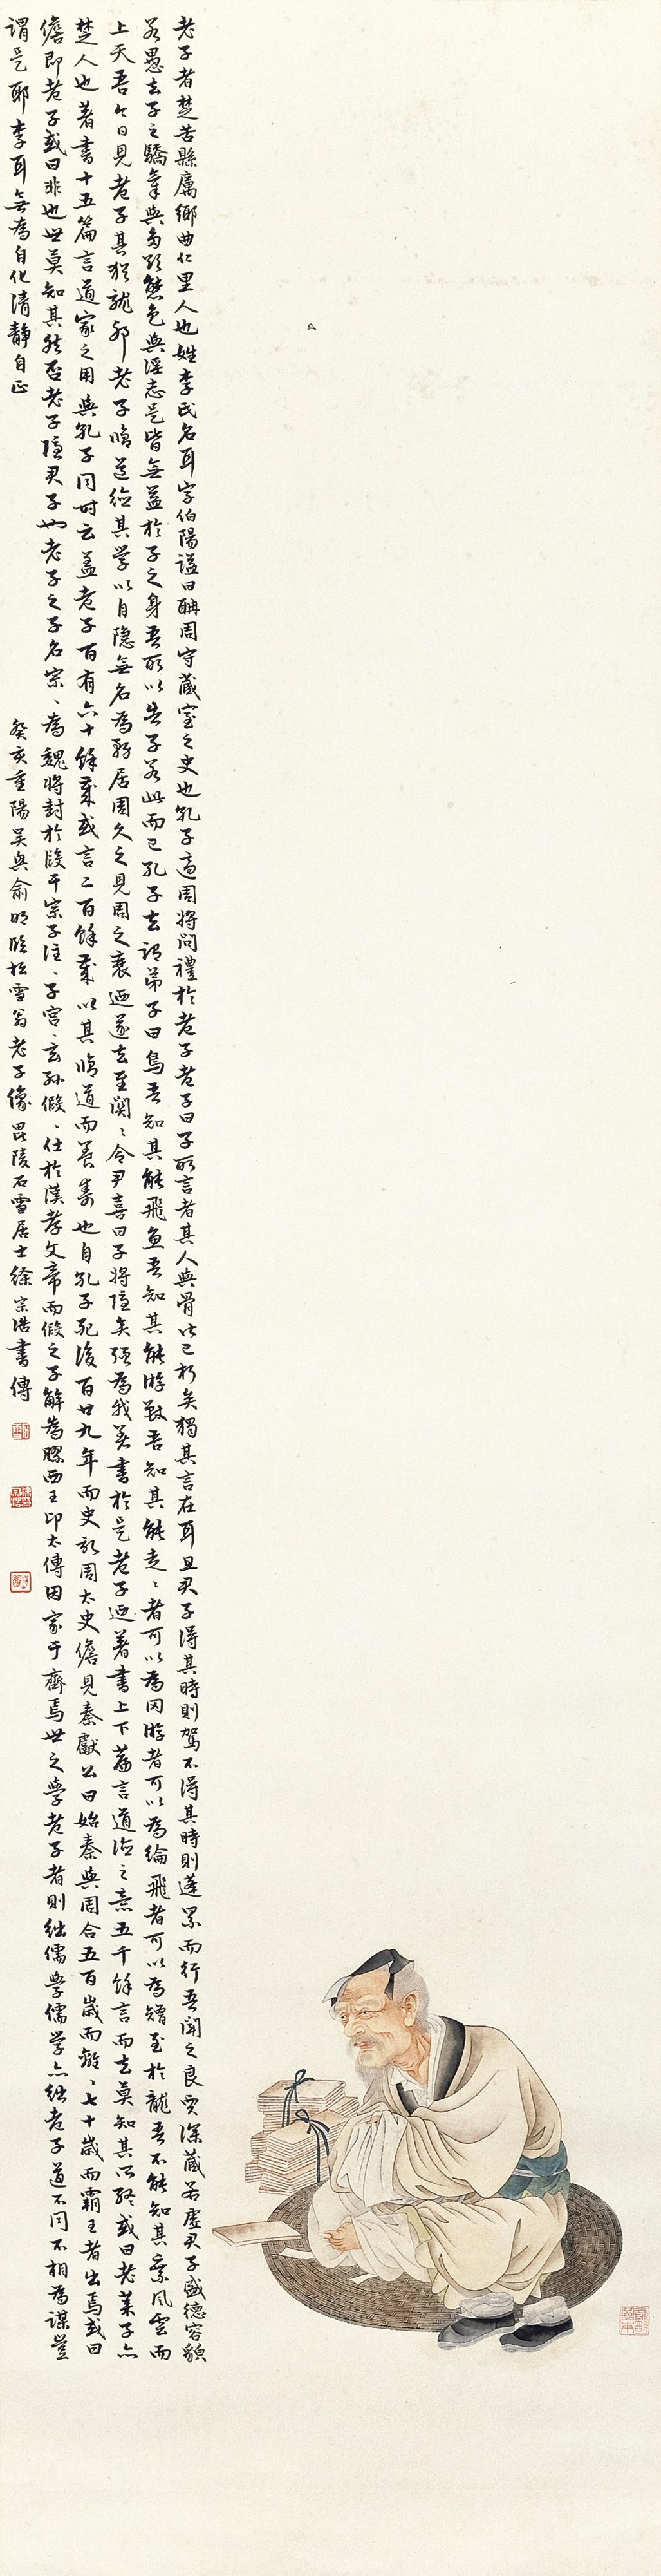 老子者楚苦縣厲鄉曲仁里人也姓李氏名耳字伯陽諡曰聃周守藏室之史也孔子適周將問禮於老子老子曰子所言者其人與骨皆已朽矣獨其言在耳且君子得其時則駕不得其時則蓬累而行吾聞之良賈深藏若虛君子盛德容貌
若愚去子之驕氣與多欲態色與淫志是皆無益於子之身吾所以告子若此而已孔子去謂弟子曰鳥吾知其能飛魚吾知其能游獸吾知其能走、者可以為罔游者可以為綸飛者可以為矰至於龍吾不能知其乘風雲而
上天吾今日見老子其猶龍邪老子脩道德其學以自隱無名為務居周久之見周之衰迺遂去至關、令尹喜曰子將隱矣彊為我著書於是老子迺著書上下篇言道德之意五千餘言而去莫知其所終或曰老萊子亦
楚人也著書十五篇言道家之用與孔子同時云蓋老子百有六十餘歲或言二百餘歲以其脩道而養壽也自孔子死後百廿九年而史記周太史儋見秦獻公曰始秦與周合五百歲而離、七十歲而霸王者出焉或曰
儋即老子或曰非也世莫知其然否老子隱君子也老子之子名宗、為魏將封於段干宗子注、子宮、玄孫假、仕於漢孝文帝而假之子解為膠西王卬太傅因家于齊焉世之學老子者則絀儒學儒學亦絀老子道不同不相為謀豈
謂是耶李耳無為自化清靜自正
癸亥重陽吳興俞明臨松雪翁老子像毘陵石雪居士徐宗浩書傳